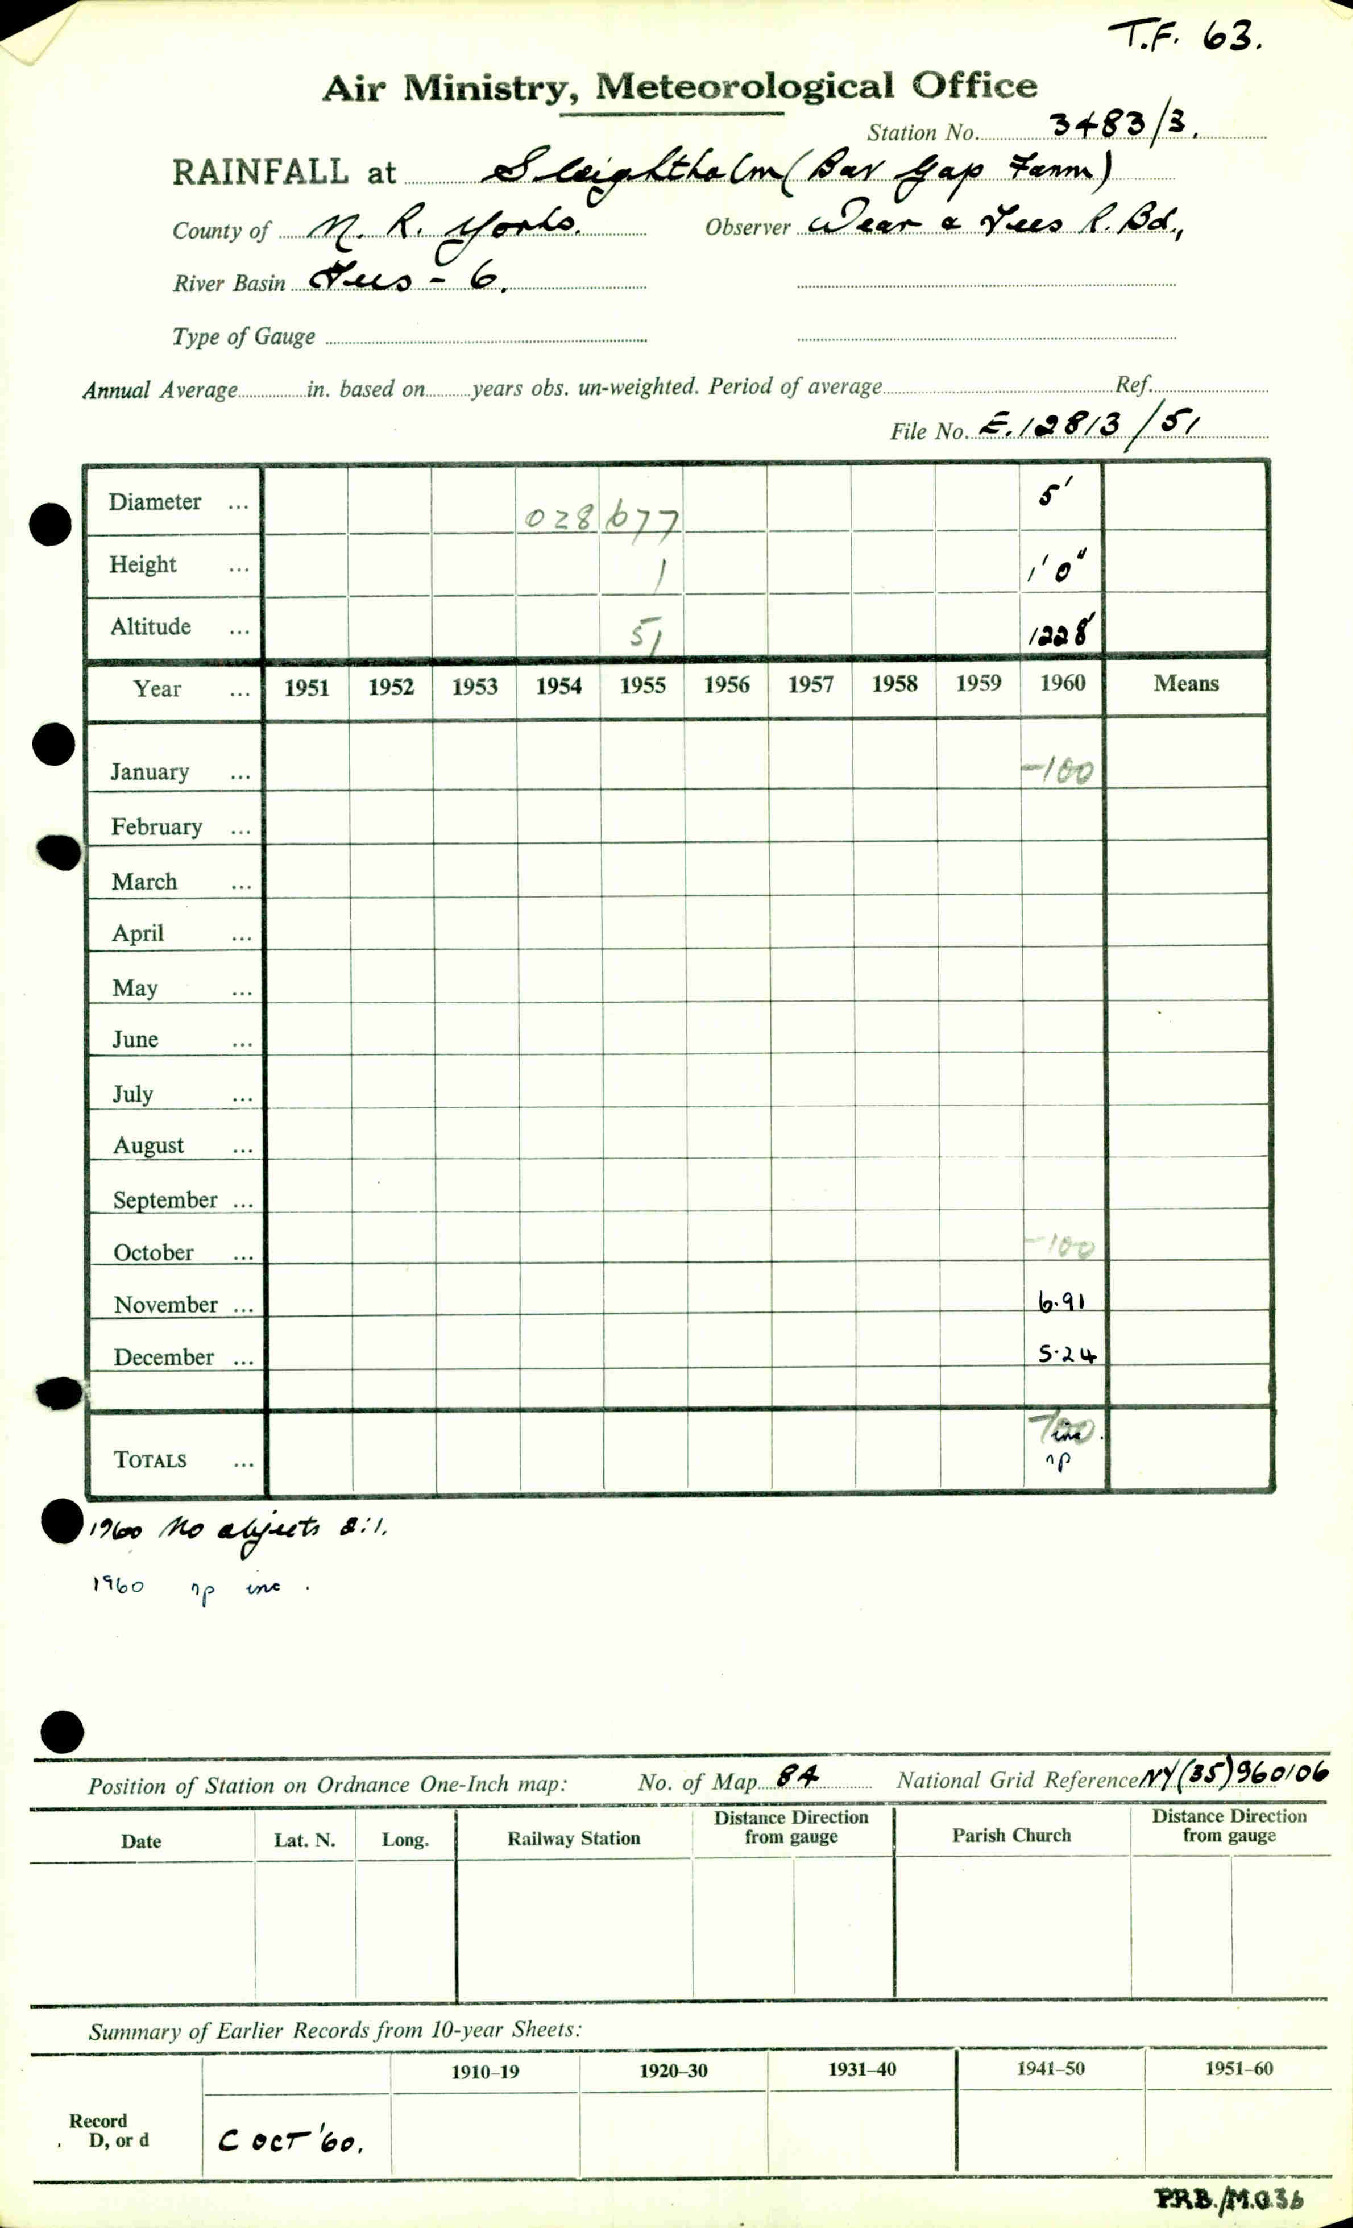 T.F. 63.
Air Ministry, Meteorological Office
Station No. 3483/3.
RAINFALL at Sleightholm (Bar Gap Farm)
County of N. R. Yorks. Observer Wear & Tees R. Bd.,
River Basin Tees - 6.
Type of Gauge
Annual Average in. based on years obs. un-weighted. Period of average Ref.
File No. E.12813/51
Diameter ... 028677 5'
Height ... 1 1'0"
Altitude ... 51 1228'
Year ... 1951 1952 1953 1954 1955 1956 1957 1958 1959 1960 Means
January ... -100
February ...
March ...
April ...
May ...
June ...
July ...
August ...
September ...
October ... -100
November ... 6.91
December ... 5.24
-100
inc.
TOTALS ... np
1960 No objects 2:1.
1960 np inc.
Position of Station on Ordnance One-Inch map: No. of Map 84 National Grid Reference NY(35)960106
Date Lat. N. Long. Railway Station Distance Direction from gauge Parish Church Distance Direction from gauge
Summary of Earlier Records from 10-year Sheets:
1910–19 1920–30 1931–40 1941–50 1951–60
Record
D, or d C OCT '60.
P.R.B./M.O.36